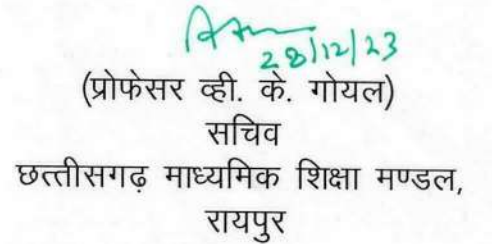 28/12/23
(प्रोफेसर व्ही. के. गोयल)
सचिव
छत्तीसगढ़ माध्यमिक शिक्षा मण्डल,
रायपुर